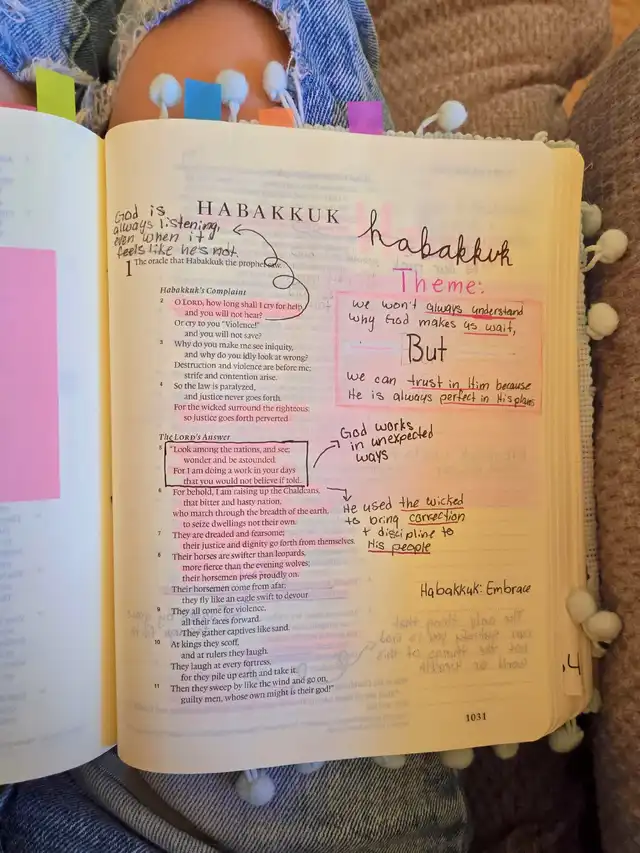 God is
always listening,
even when it
feels like he's not.
HABAKKUK
1 The oracle that Habakkuk the prophet saw.
Habakkuk's Complaint
2 O LORD, how long shall I cry for help,
and you will not hear?
Or cry to you "Violence!"
and you will not save?
3 Why do you make me see iniquity,
and why do you idly look at wrong?
Destruction and violence are before me;
strife and contention arise.
4 So the law is paralyzed,
and justice never goes forth.
For the wicked surround the righteous;
so justice goes forth perverted.
The LORD's Answer
5 "Look among the nations, and see;
wonder and be astounded.
For I am doing a work in your days
that you would not believe if told.
6 For behold, I am raising up the Chaldeans,
that bitter and hasty nation,
who march through the breadth of the earth,
to seize dwellings not their own.
7 They are dreaded and fearsome;
their justice and dignity go forth from themselves.
8 Their horses are swifter than leopards,
more fierce than the evening wolves;
their horsemen press proudly on.
Their horsemen come from afar;
they fly like an eagle swift to devour.
9 They all come for violence,
all their faces forward.
They gather captives like sand.
10 At kings they scoff,
and at rulers they laugh.
They laugh at every fortress,
for they pile up earth and take it.
11 Then they sweep by like the wind and go on,
guilty men, whose own might is their god!"
habakkuk
Theme:
we won't always understand
why God makes us wait,
But
we can trust in Him because
He is always perfect in His plans
God works
in unexpected
ways
He used the wicked
to bring correction
+ discipline to
His people
Habakkuk: Embrace
1031